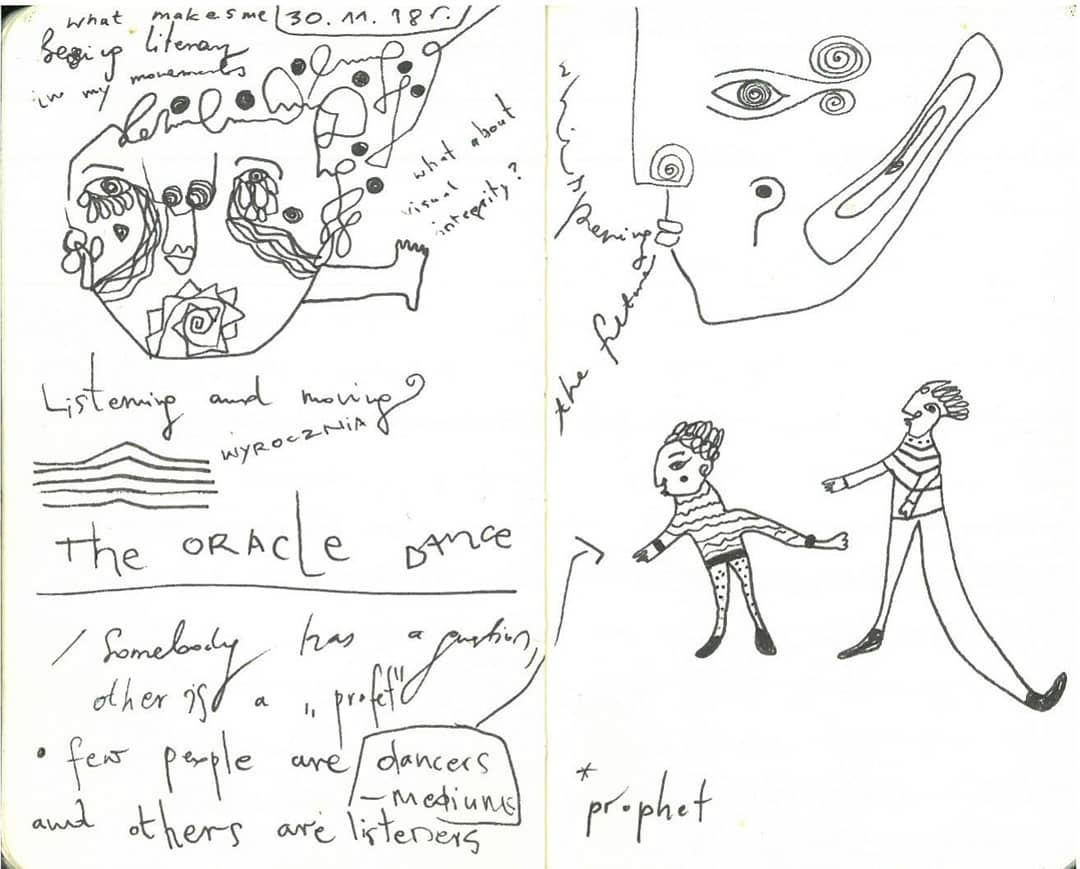 what makes me
30.11.18r.
literary
in my movements
what about
visual
integrity?
Listening and moving
WYROCZNIA
The ORACLE DANCE
/ Somebody has a question,
other is a „profet"
• few people are dancers
– mediums
and others are listeners
whispering
the future
* prophet